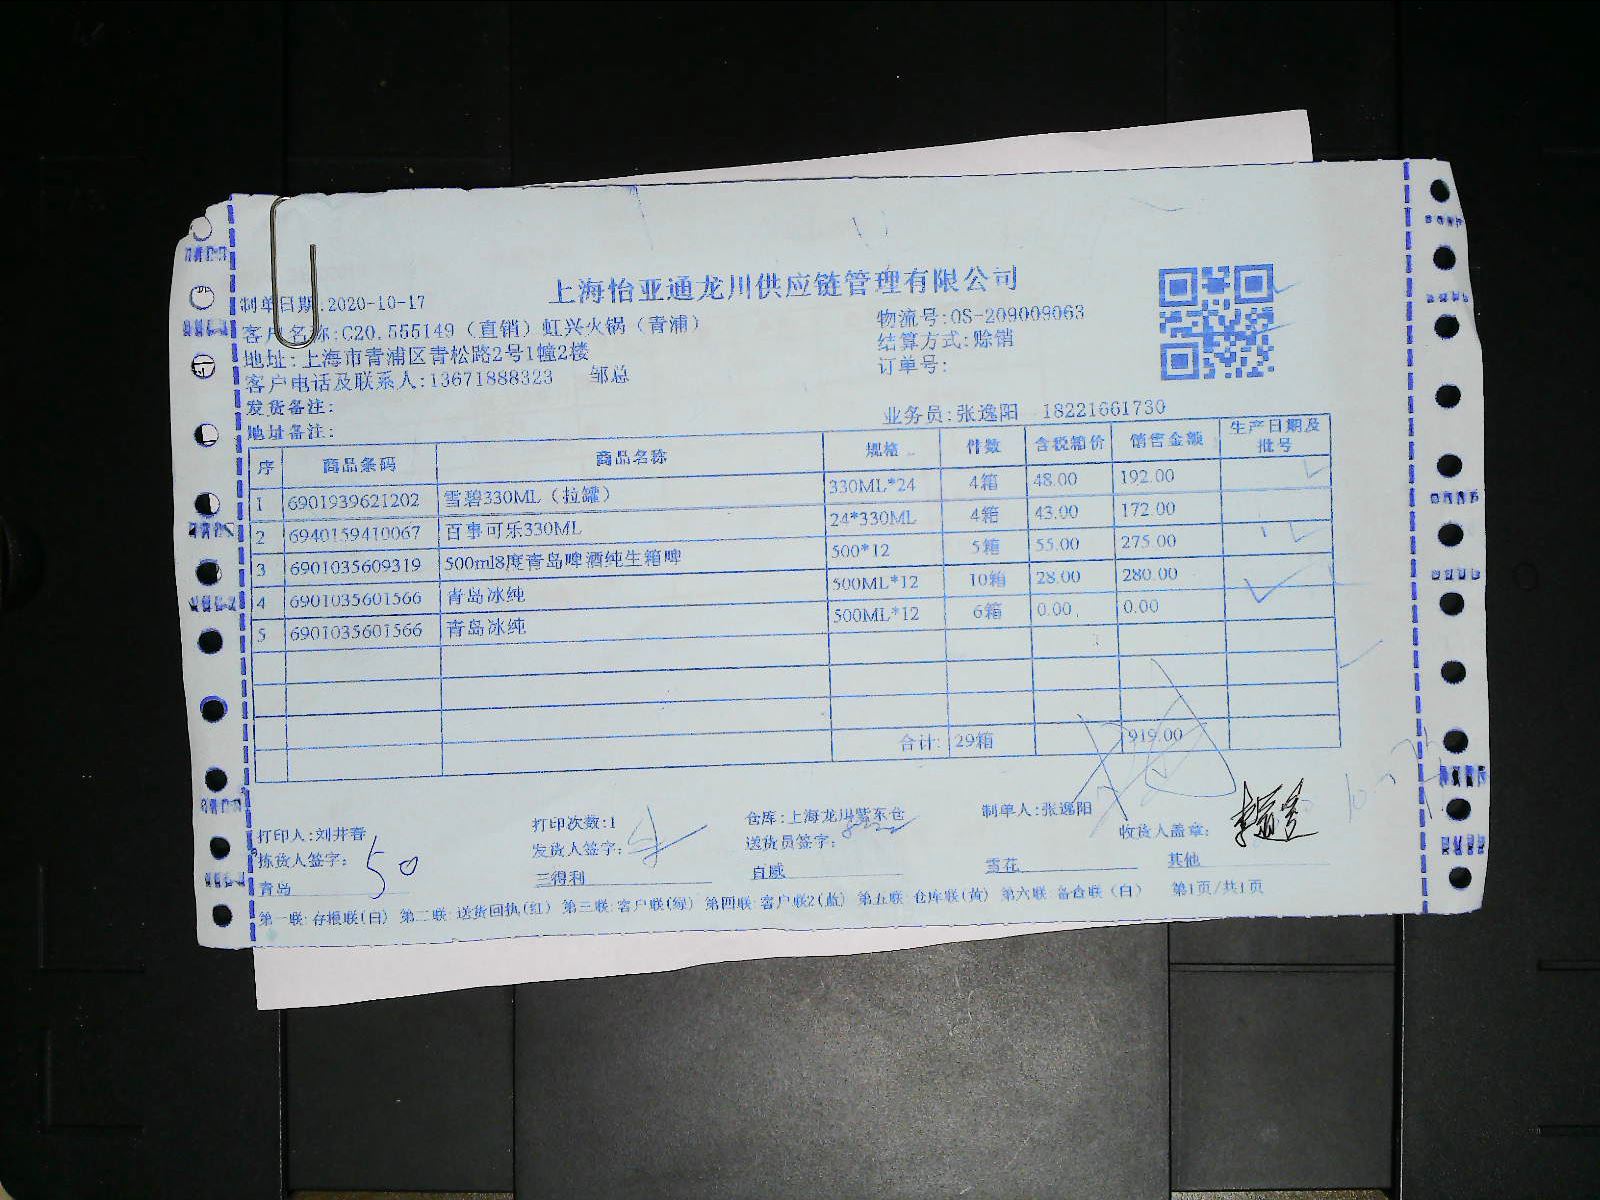 上海怡亚通龙川供应链管理有限公司
制单日期:2020-10-17
客户名称:C20.555149（直销）虹兴火锅（青浦） 物流号:OS-209009063
地址:上海市青浦区青松路2号1幢2楼 结算方式:赊销
客户电话及联系人:13671888323 邹总 订单号:
发货备注:
地址备注: 业务员:张逸阳 18221661730
序 商品条码 商品名称 规格 件数 含税箱价 销售金额 生产日期及批号
1 6901939621202 雪碧330ML（拉罐） 330ML*24 4箱 48.00 192.00
2 6940159410067 百事可乐330ML 24*330ML 4箱 43.00 172.00
3 6901035609319 500ml8度青岛啤酒纯生箱啤 500*12 5箱 55.00 275.00
4 6901035601566 青岛冰纯 500ML*12 10箱 28.00 280.00
5 6901035601566 青岛冰纯 500ML*12 6箱 0.00 0.00
合计: 29箱 919.00
打印人:刘井春 打印次数:1 仓库:上海龙川紫东仓 制单人:张逸阳
拣货人签字: 50 发货人签字: 送货员签字: 收货人盖章:
青岛 三得利 百威 雪花 其他
第一联:存根联(白) 第二联:送货回执(红) 第三联:客户联(绿) 第四联:客户联2(蓝) 第五联:仓库联(黄) 第六联:备查联(白) 第1页/共1页